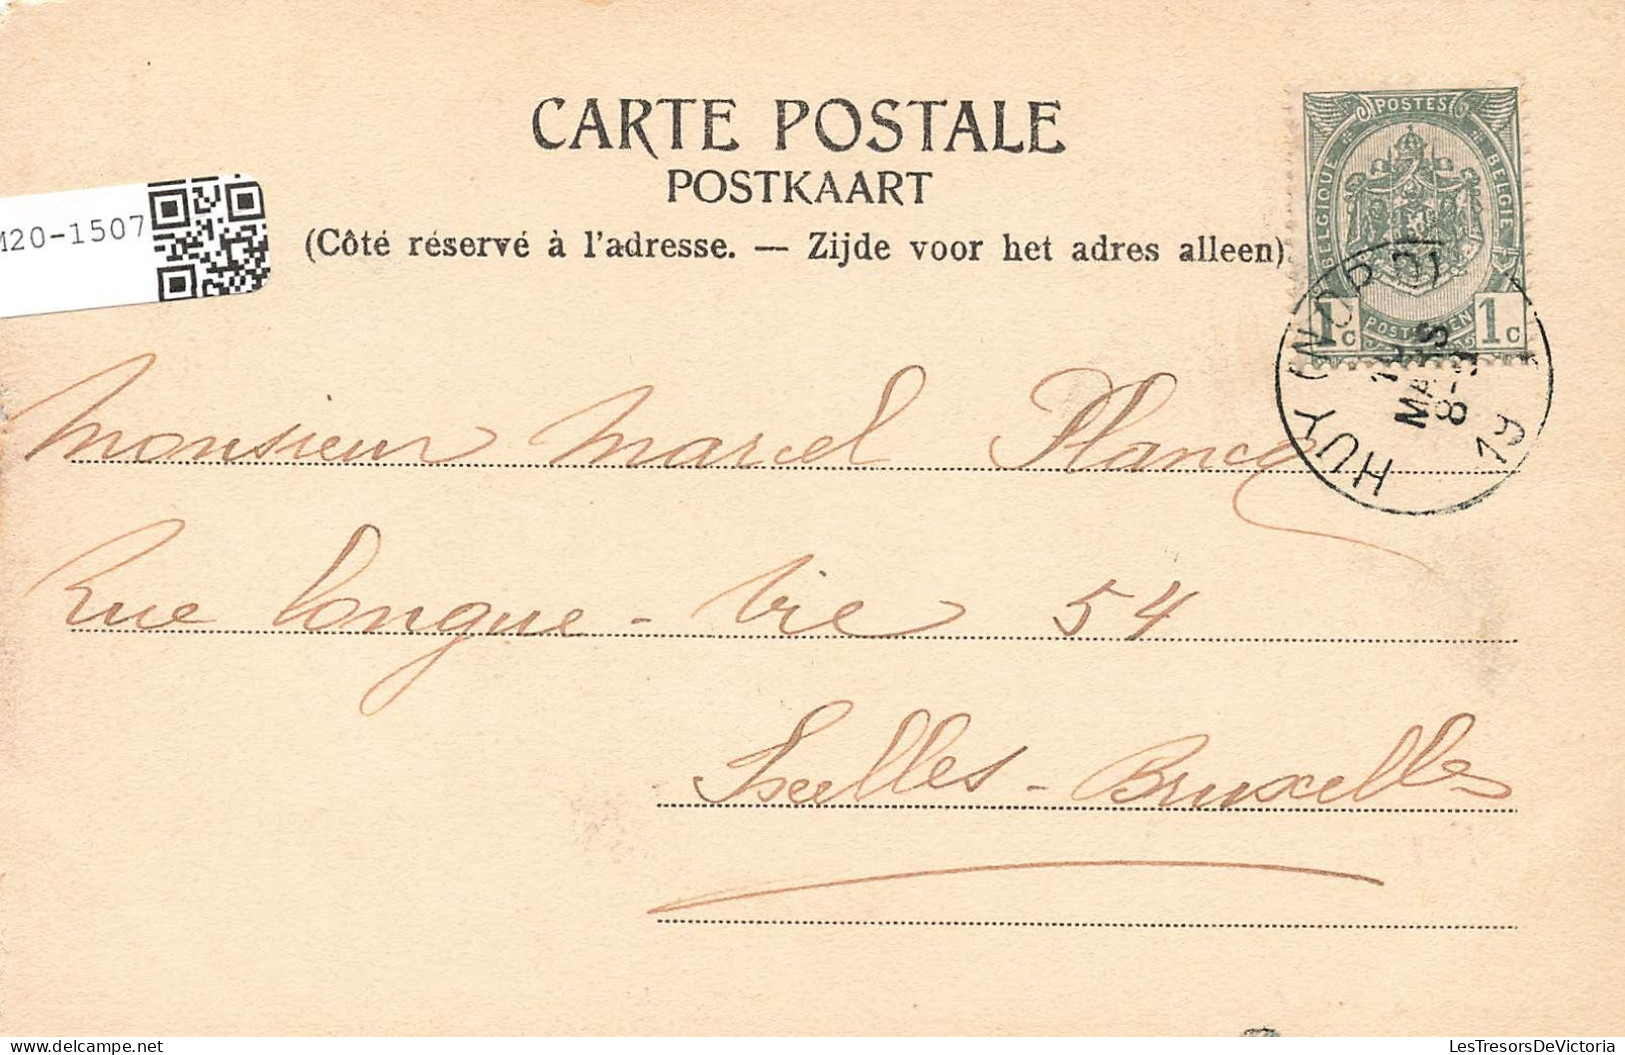 CARTE POSTALE
POSTKAART
(Côté réservé à l'adresse. — Zijde voor het adres alleen)
M20-1507
POSTES
BELGIQUE
BELGIE
1c 1c
HUY (NORD)
MARS
8-9
19
Monsieur Marcel Plancq
Rue longue-vie 54
Ixelles-Bruxelles
LesTresorsDeVictoria